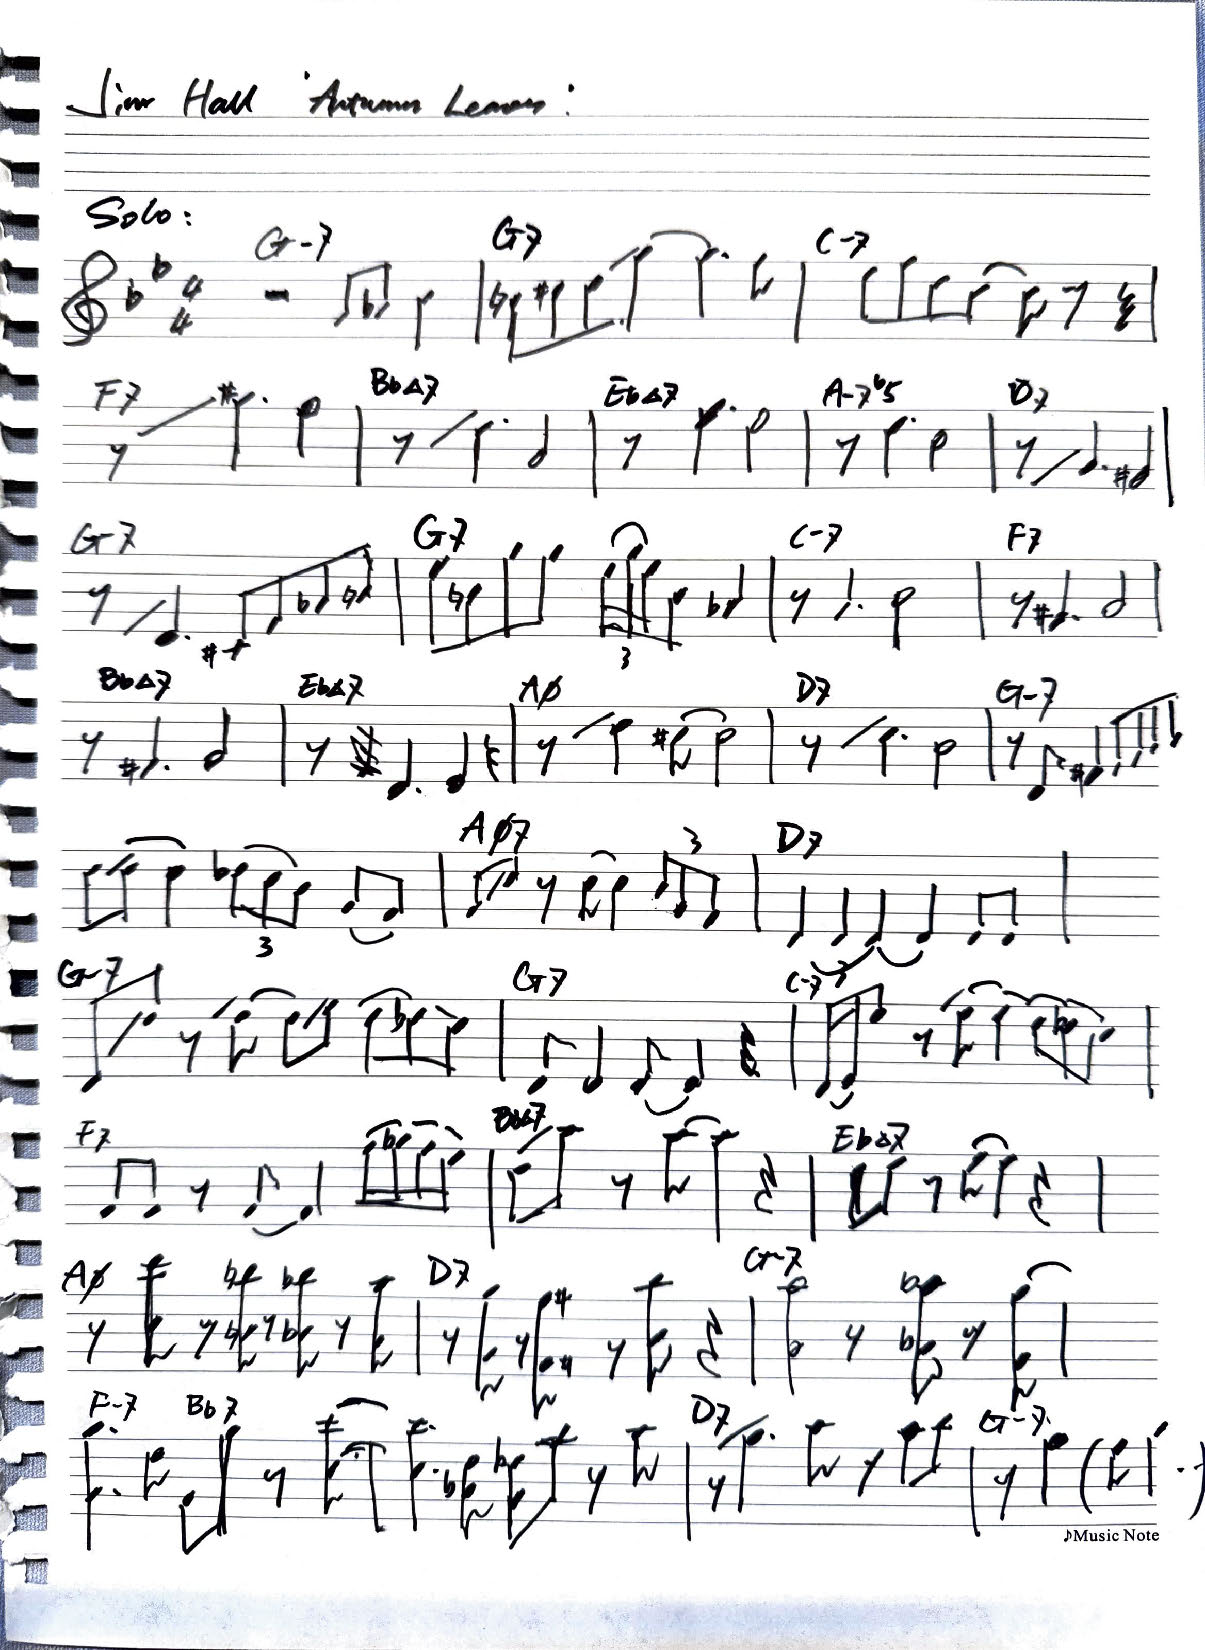 Jim Hall 'Autumn Leaves'.
Solo:
G-7 G7 C-7
4
4
F7 Bb△7 Eb△7 A-7b5 D7
G-7 G7 C-7 F7
3
Bb△7 Eb△7 Aø D7 G-7
Aø7 3 D7
3
G-7 G7 C-7
F7 Bb△7 Eb△7
Aø D7 G-7
F-7 Bb7 D7 G-7
♪Music Note